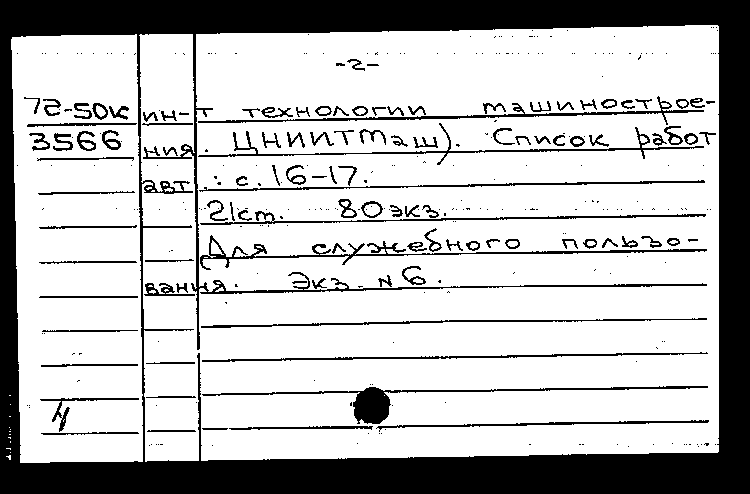 -2-
72-50к ин-т технологии машинострое-
3566 ния. ЦНИИТМаш). Список работ
авт.: с. 16-17.
21 ст. 80 экз.
Для служебного пользо-
вания. Экз. N 6.